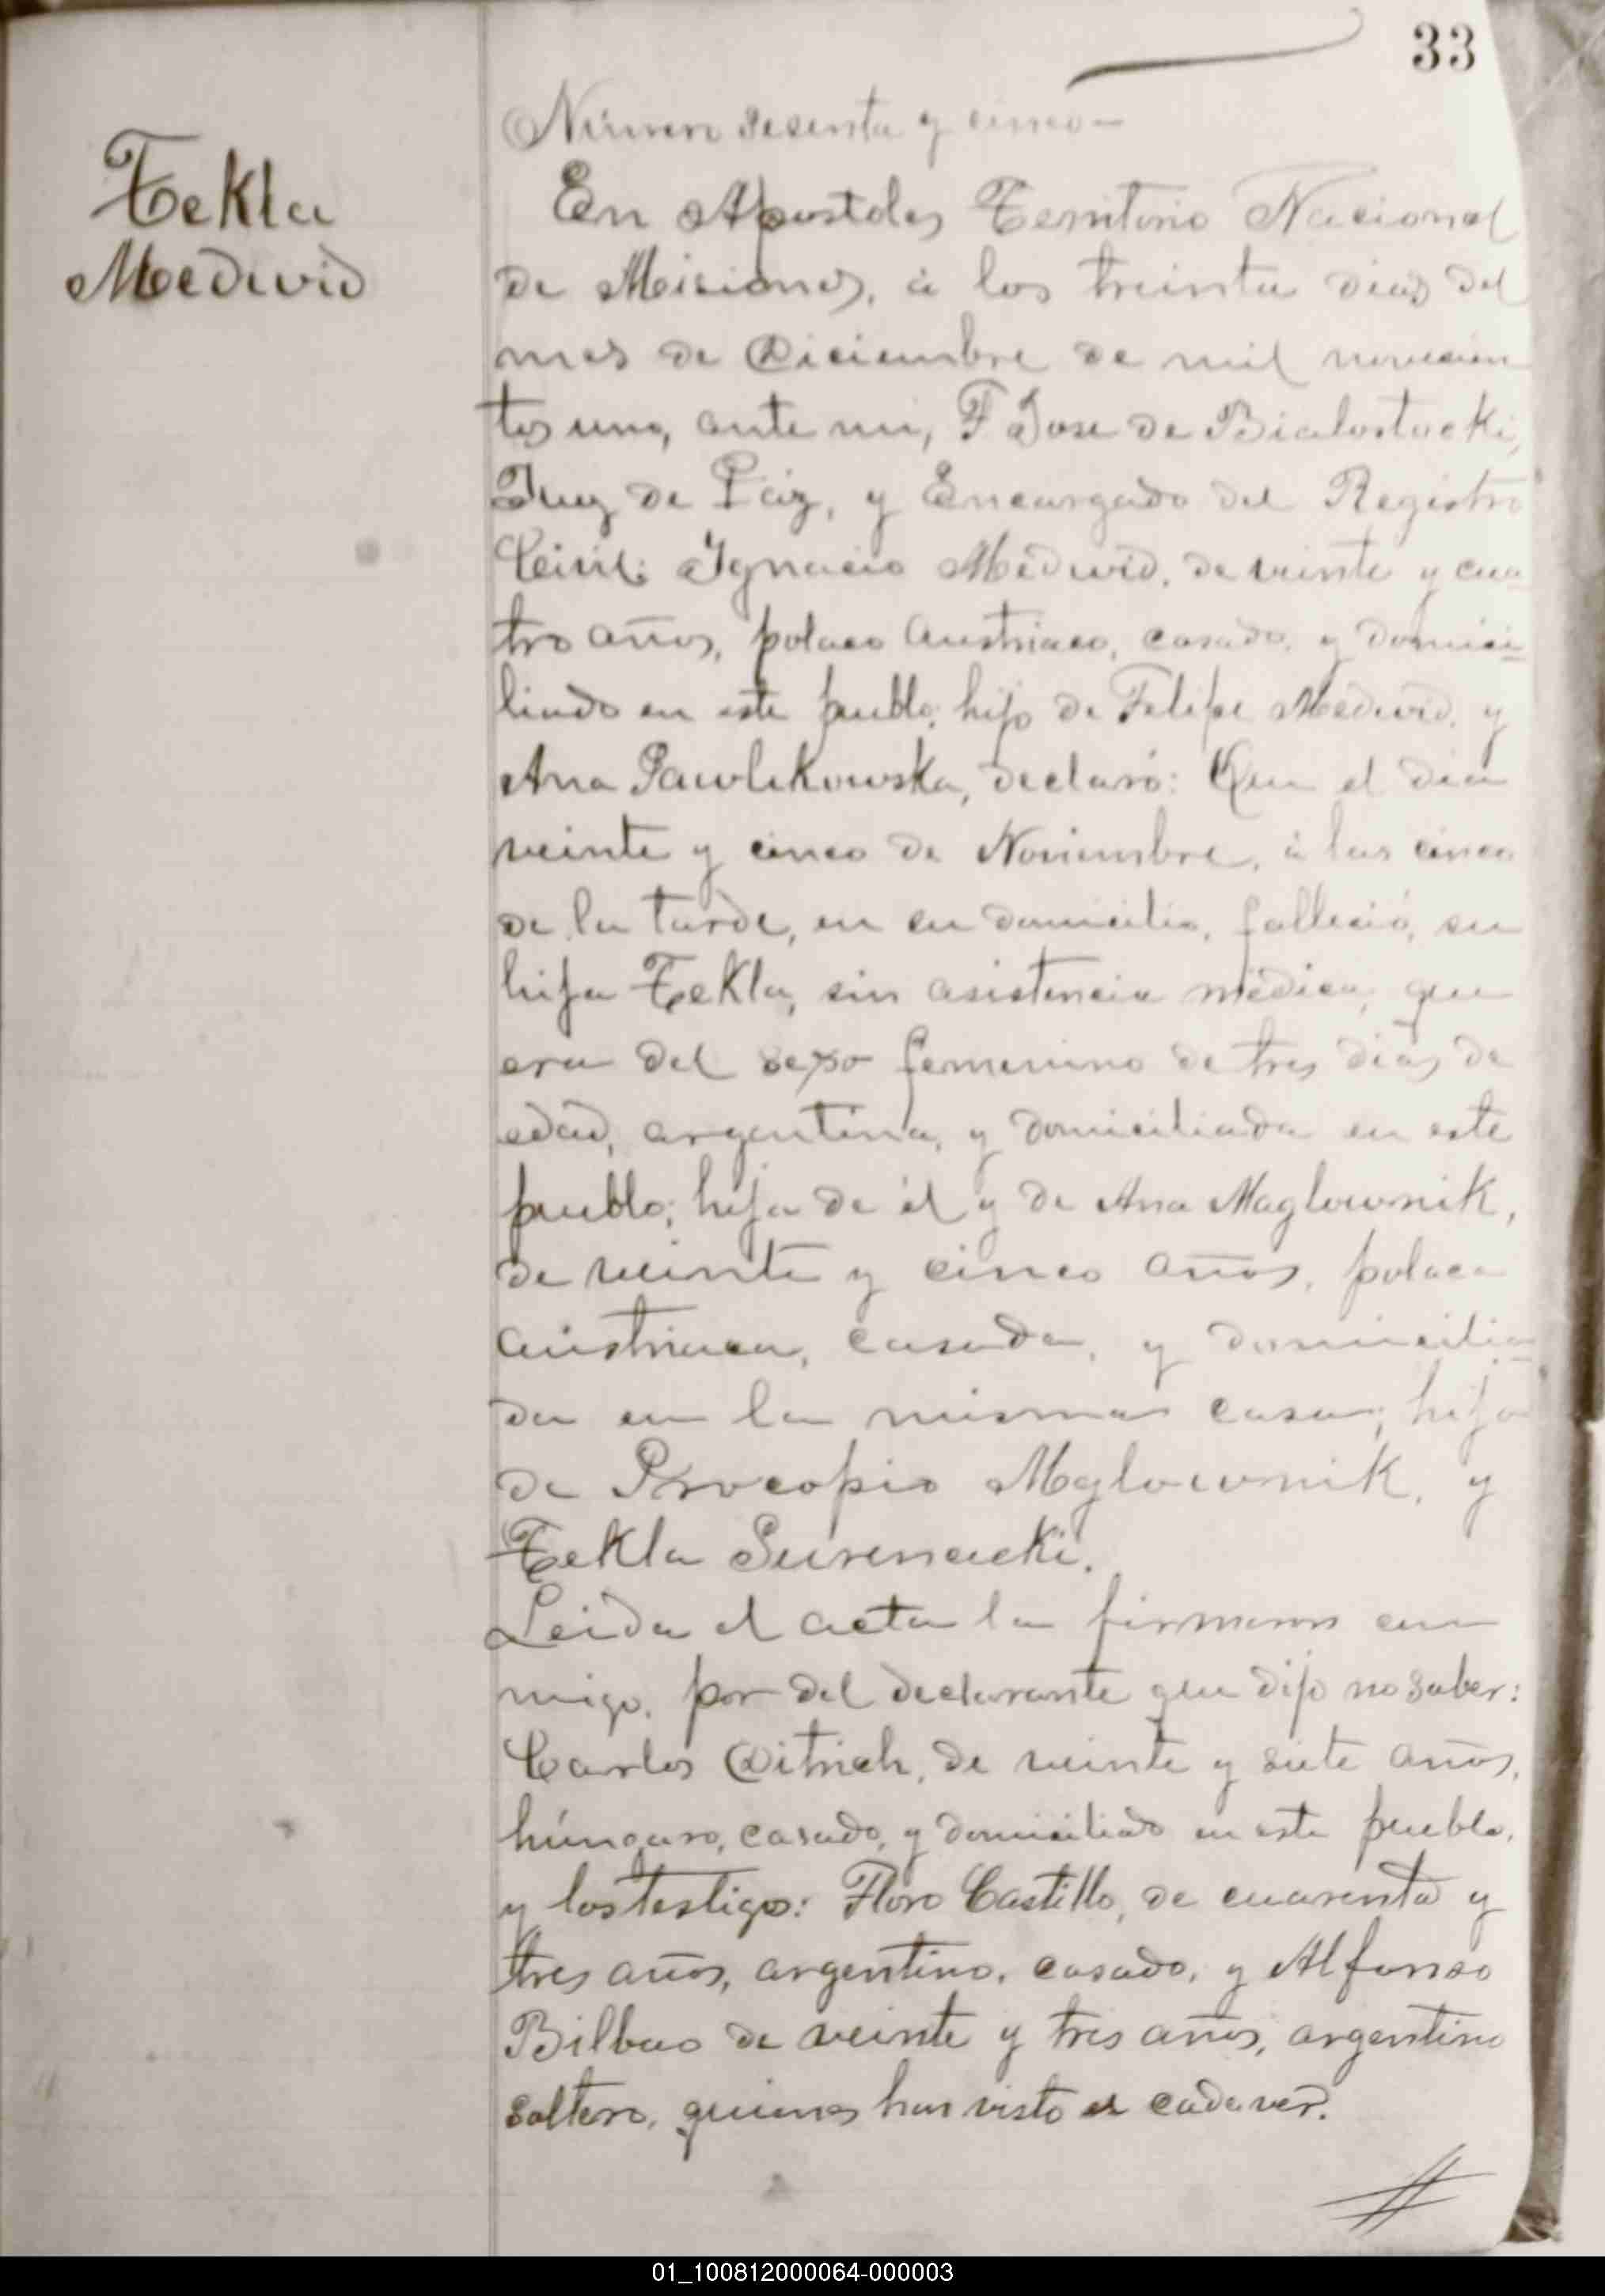 33
Tekla
Medwid
Número sesenta y cinco—
En Apostoles Territorio Nacional
de Misiones, á los treinta dias del
mes de Diciembre de mil novecien
tos uno, ante mi, F José de Bialostocki,
Juez de Páz, y Encargado del Registro
Civil: Ignacio Medwid, de veinte y cua
tro años, polaco austriaco, casado, y domici-
liado en este pueblo, hijo de Felipe Medwid, y
Ana Pawlikowska, declaró: Que el dia
veinte y cinco de Noviembre, á las cinco
de la tarde, en su domicilio, falleció, su
hija Tekla, sin asistencia médica, que
era del sexo femenino de tres dias de
edad, argentina, y domiciliada en este
pueblo; hija de él y de Ana Maglownik,
de veinte y cinco años, polaca
austriaca, casada, y domicilia-
da en la misma casa; hija
de Procopio Mglownik, y
Tekla
Leida el acta la firmaron con
migo, por del declarante que dijo no saber:
Carlos Ditrich, de veinte y siete años,
húngaro, casado, y domiciliado en este pueblo,
y los testigos: Floro Castillo, de cuarenta y
tres años, argentino, casado, y Alfonso
Bilbao de veinte y tres años, argentino
soltero, quienes han visto el cadaver.
01_100812000064-000003